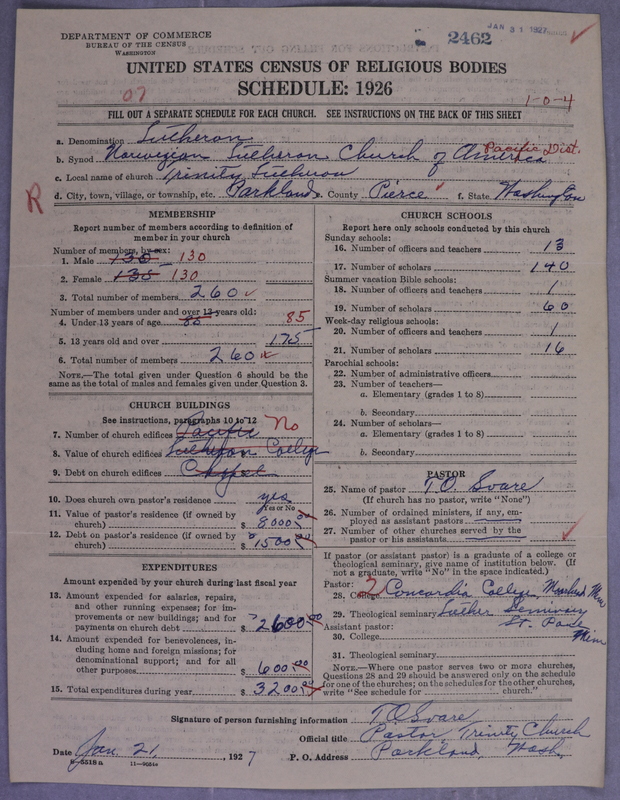 DEPARTMENT OF COMMERCE
BUREAU OF THE CENSUS
WASHINGTON
2462
JAN 31 1927
UNITED STATES CENSUS OF RELIGIOUS BODIES
SCHEDULE: 1926
07
1-0-4
FILL OUT A SEPARATE SCHEDULE FOR EACH CHURCH. SEE INSTRUCTIONS ON THE BACK OF THIS SHEET
a. Denomination Lutheran
b. Synod Norwegian Lutheran Church of America Pacific Dist.
c. Local name of church Trinity Lutheran
R d. City, town, village, or township, etc. Parkland e. County Pierce f. State Washington
MEMBERSHIP
Report number of members according to definition of
member in your church
Number of members, by sex:
1. Male 130 130
2. Female 135 130
3. Total number of members 260
Number of members under and over 13 years old:
4. Under 13 years of age 85 85
5. 13 years old and over 175
6. Total number of members 260
NOTE.—The total given under Question 6 should be
the same as the total of males and females given under Question 3.
CHURCH BUILDINGS
See instructions, paragraphs 10 to 12
7. Number of church edifices Pacific No
8. Value of church edifices Lutheran College
9. Debt on church edifices Chapel
10. Does church own pastor's residence yes
Yes or No
11. Value of pastor's residence (if owned by
church) $ 8000.00
12. Debt on pastor's residence (if owned by
church) $ 1500.00
EXPENDITURES
Amount expended by your church during last fiscal year
13. Amount expended for salaries, repairs,
and other running expenses; for im-
provements or new buildings; and for
payments on church debt $ 2600.00
14. Amount expended for benevolences, in-
cluding home and foreign missions; for
denominational support; and for all
other purposes $ 600.00
15. Total expenditures during year $ 3200.00
CHURCH SCHOOLS
Report here only schools conducted by this church
Sunday schools:
16. Number of officers and teachers 13
17. Number of scholars 140
Summer vacation Bible schools:
18. Number of officers and teachers 1
19. Number of scholars 60
Week-day religious schools:
20. Number of officers and teachers 1
21. Number of scholars 16
Parochial schools:
22. Number of administrative officers
23. Number of teachers—
a. Elementary (grades 1 to 8)
b. Secondary
24. Number of scholars—
a. Elementary (grades 1 to 8)
b. Secondary
PASTOR
25. Name of pastor T.O. Svare
(If church has no pastor, write "None")
26. Number of ordained ministers, if any, em-
ployed as assistant pastors
27. Number of other churches served by the
pastor or his assistants
If pastor (or assistant pastor) is a graduate of a college or
theological seminary, give name of institution below. (If
not a graduate, write "No" in the space indicated.)
Pastor:
28. College Concordia College, Moorhead Minn
29. Theological seminary Luther Seminary
St. Paul
Minn
Assistant pastor:
30. College
31. Theological seminary
NOTE.—Where one pastor serves two or more churches,
Questions 28 and 29 should be answered only on the schedule
for one of the churches; on the schedules for the other churches,
write "See schedule for church."
Signature of person furnishing information T.O. Svare
Official title Pastor Trinity Church
Date Jan. 21, 1927 P. O. Address Parkland, Wash.
8-5518 a